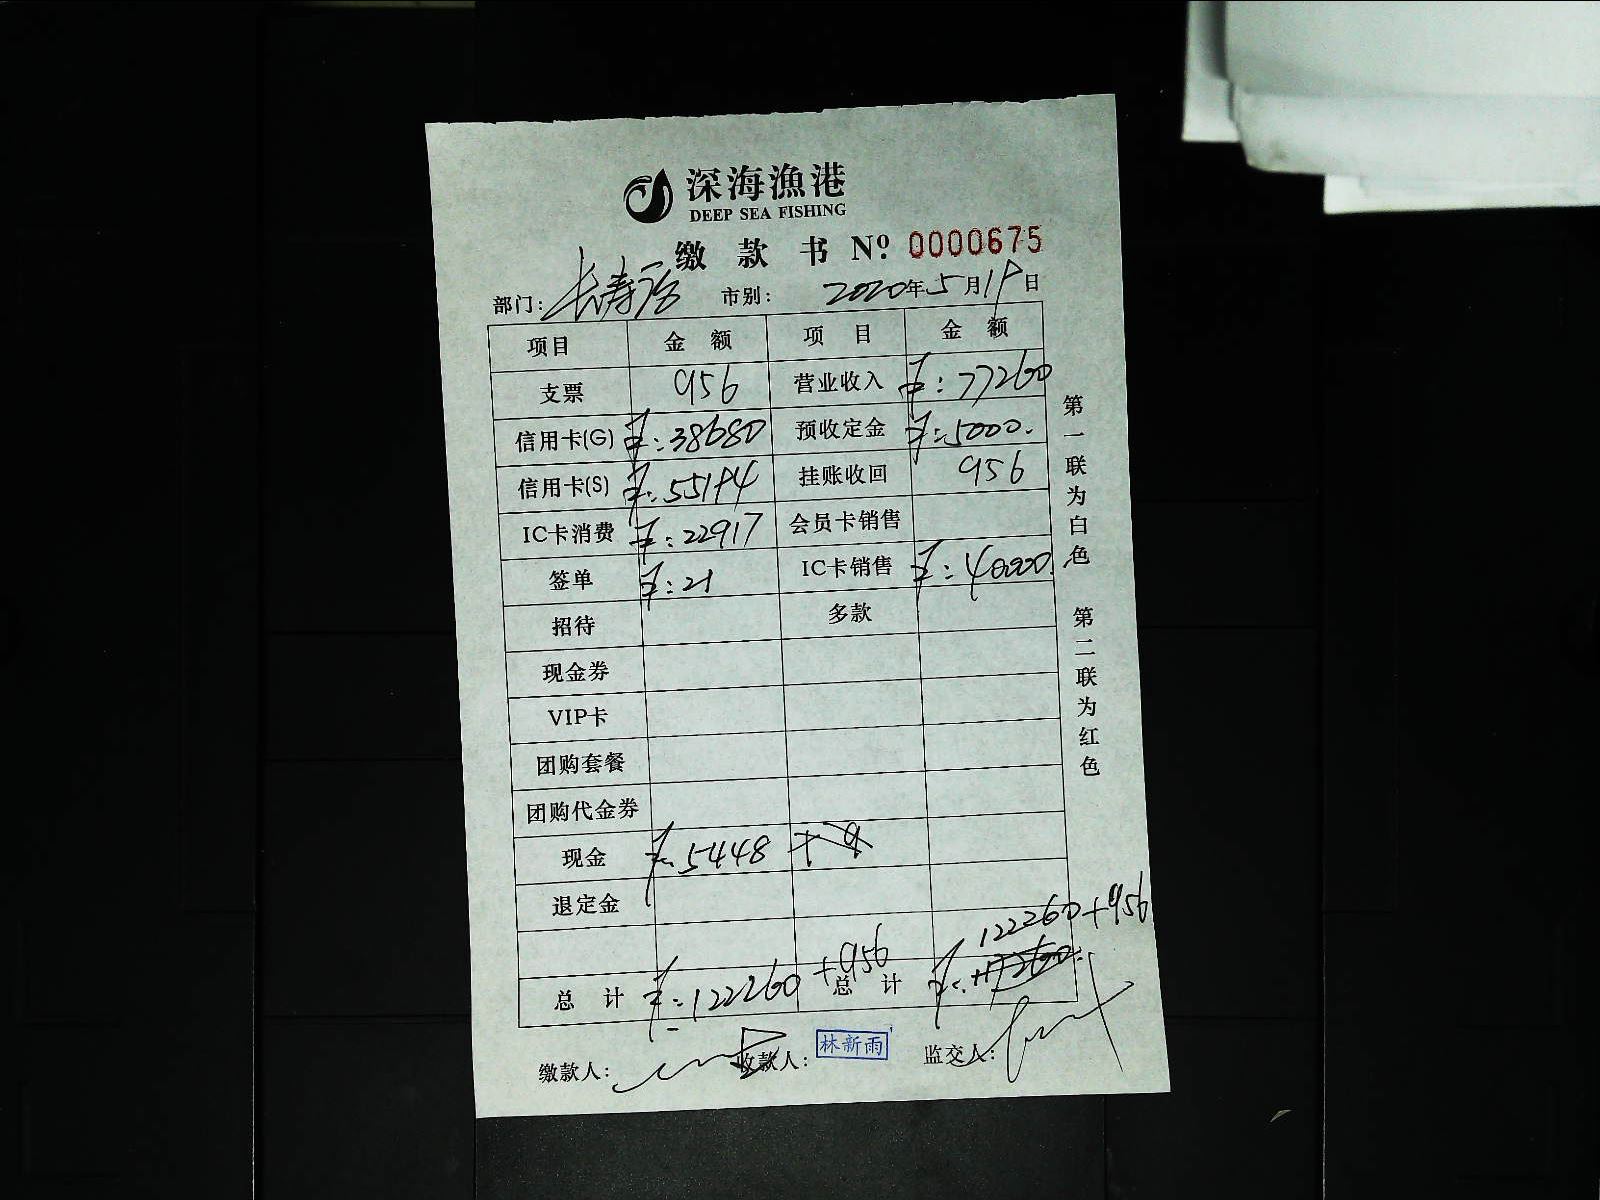 深海漁港
DEEP SEA FISHING
缴款书 Nº: 0000675
部门: 长寿路 市别: 2020年5月19日
项目 金额 项目 金额
支票 956 营业收入 ¥:77260
信用卡(G) ¥:38680 预收定金 ¥:5000.
信用卡(S) ¥:55194 挂账收回 956
IC卡消费 ¥:22917 会员卡销售
签单 ¥:21 IC卡销售 ¥:40000.
招待 多款
现金券
VIP卡
团购套餐
团购代金券
现金 ¥:5448
退定金
总计 ¥:122260+956 总计 ¥: 122260+956
缴款人: 收款人: 林新雨 监交人:
第一联为白色 第二联为红色